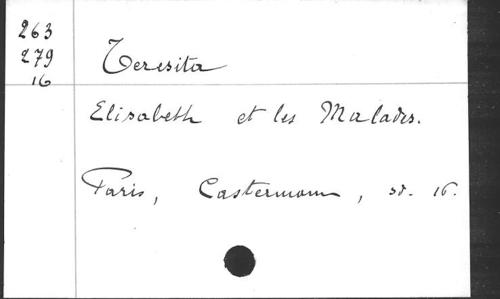 263
279
16
Teresita
Elisabeth et les Malades.
Paris, Casterman, sd. 16.